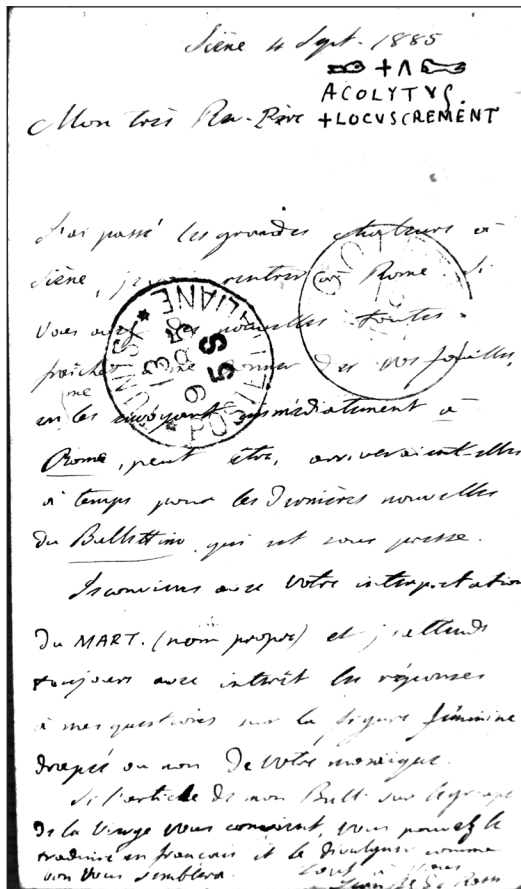 Siène 4 Sept. 1885
+ Λ
ACOLYTVS
+LOCVSCREMENT
Mon très Rev. Père
J'ai passé les grandes chaleurs à
Siène, rentrer à Rome. Si
vous avez des nouvelles toutes
fraîches à me donner de vos fouilles,
en les envoyant immédiatement à
Rome, peut être, arriveraient-elles
à temps pour les dernières nouvelles
du Bullettino, qui est sous presse.
Je conviens avec votre interpretation
du MART. (nom propre) et j'attends
toujours avec intérêt les réponses
à mes questions sur la figure féminine
drapée ou non de votre mosaïque.
Si l'article de mon Bull. sur le groupe
de la Vierge vous convient, vous pouvez le
traduire en français et le divulguer comme
bon vous semblera. Tout à vous
TUNISI * POSTE ITALIANE
5 S